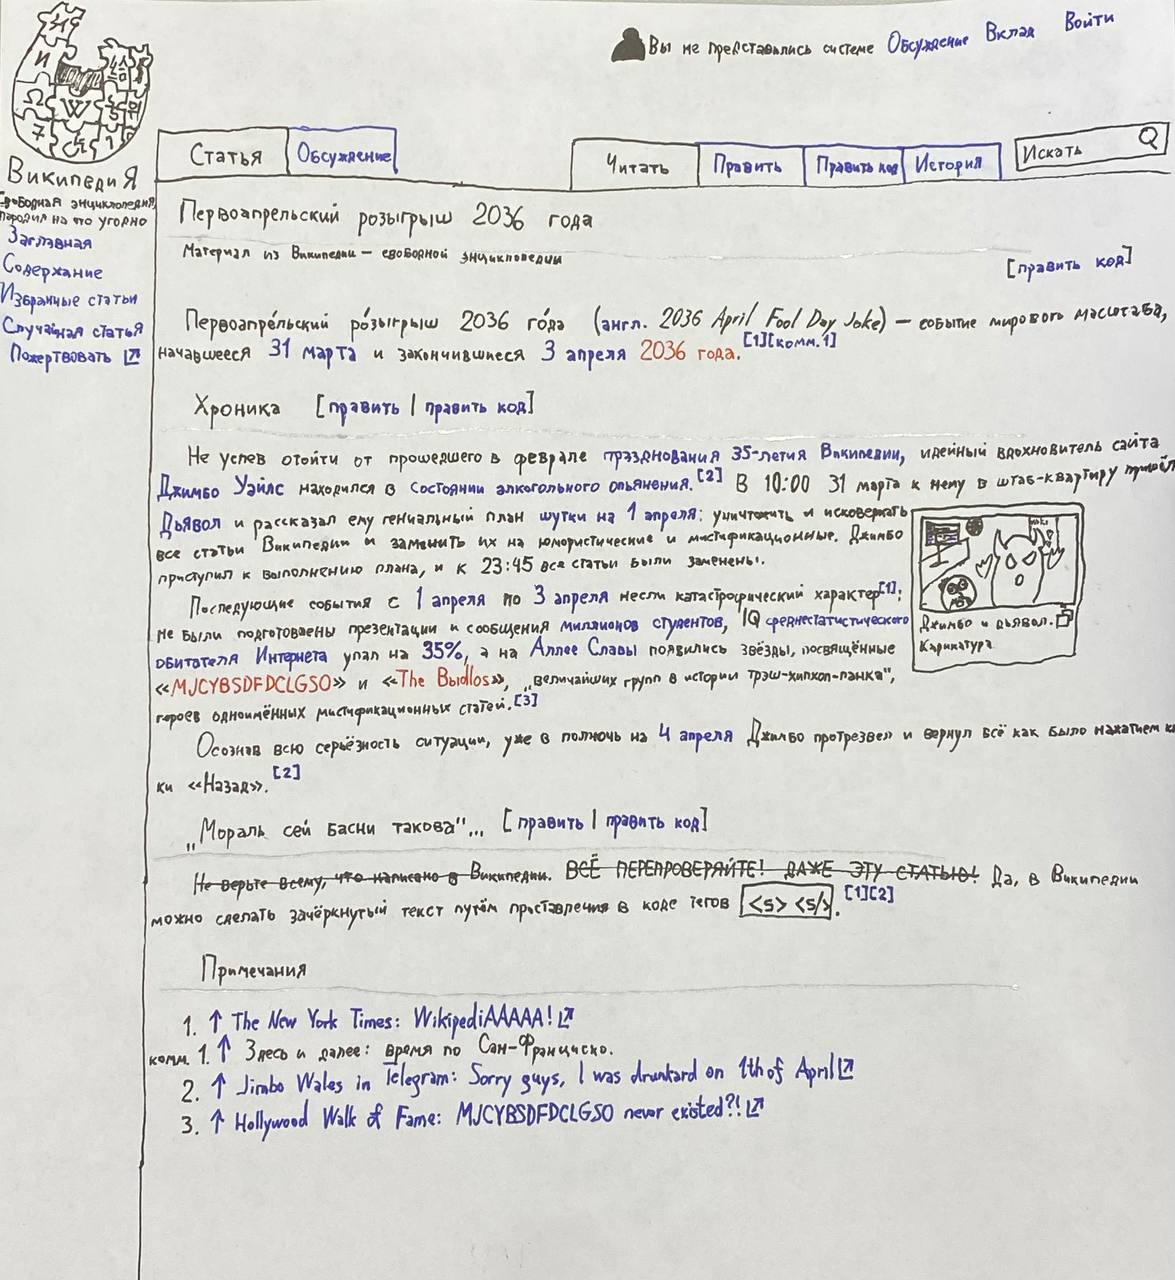 Вы не представились системе Обсуждение Вклад Войти
И
Ω W
7
ВикипедиЯ
Свободная энциклопедия,
пародия на что угодно
Заглавная
Содержание
Избранные статьи
Случайная статья
Пожертвовать
Статья Обсуждение Читать Править Править код История Искать
Первоапрельский розыгрыш 2036 года
Материал из Википедии — свободной энциклопедии
[править код]
Первоапре́льский ро́зыгрыш 2036 го́да (англ. 2036 April Fool Day Joke) — событие мирового масштаба,
начавшееся 31 марта и закончившиеся 3 апреля 2036 года.[1][комм.1]
Хроника [править | править код]
Не успев отойти от прошедшего в феврале празднования 35-летия Википедии, идейный вдохновитель сайта
Джимбо Уэйлс находился в состоянии алкогольного опьянения.[2] В 10:00 31 марта к нему в штаб-квартиру пришёл
Дьявол и рассказал ему гениальный план шутки на 1 апреля: уничтожить и исковеркать
все статьи Википедии и заменить их на юмористические и мистификационные. Джимбо
приступил к выполнению плана, и к 23:45 все статьи были заменены.
Последующие события с 1 апреля по 3 апреля несли катастрофический характер[1]:
не были подготовлены презентации и сообщения миллионов студентов, IQ среднестатистического
обитателя Интернета упал на 35%, а на Аллее Славы появились звёзды, посвящённые
«MJCYBSDFDCLGSO» и «The Выdlos», „величайших групп в истории трэш-хипхоп-панка",
героев одноимённых мистификационных статей.[3]
Джимбо и дьявол.
Карикатура
Осознав всю серьёзность ситуации, уже в полночь на 4 апреля Джимбо протрезвел и вернул всё как было нажатием к
ки «Назад».[2]
„Мораль сей басни такова"... [править | править код]
Не верьте всему, что написано в Википедии. ВСЁ ПЕРЕПРОВЕРЯЙТЕ! ДАЖЕ ЭТУ СТАТЬЮ! Да, в Википедии
можно сделать зачёркнутый текст путём проставления в коде тегов <s> <s/>.[1][2]
Примечания
1. ↑ The New York Times: WikipediAAAAA!
комм. 1. ↑ Здесь и далее: время по Сан-Франциско.
2. ↑ Jimbo Wales in Telegram: Sorry guys, I was drunkard on 1th of April
3. ↑ Hollywood Walk of Fame: MJCYBSDFDCLGSO never existed?!